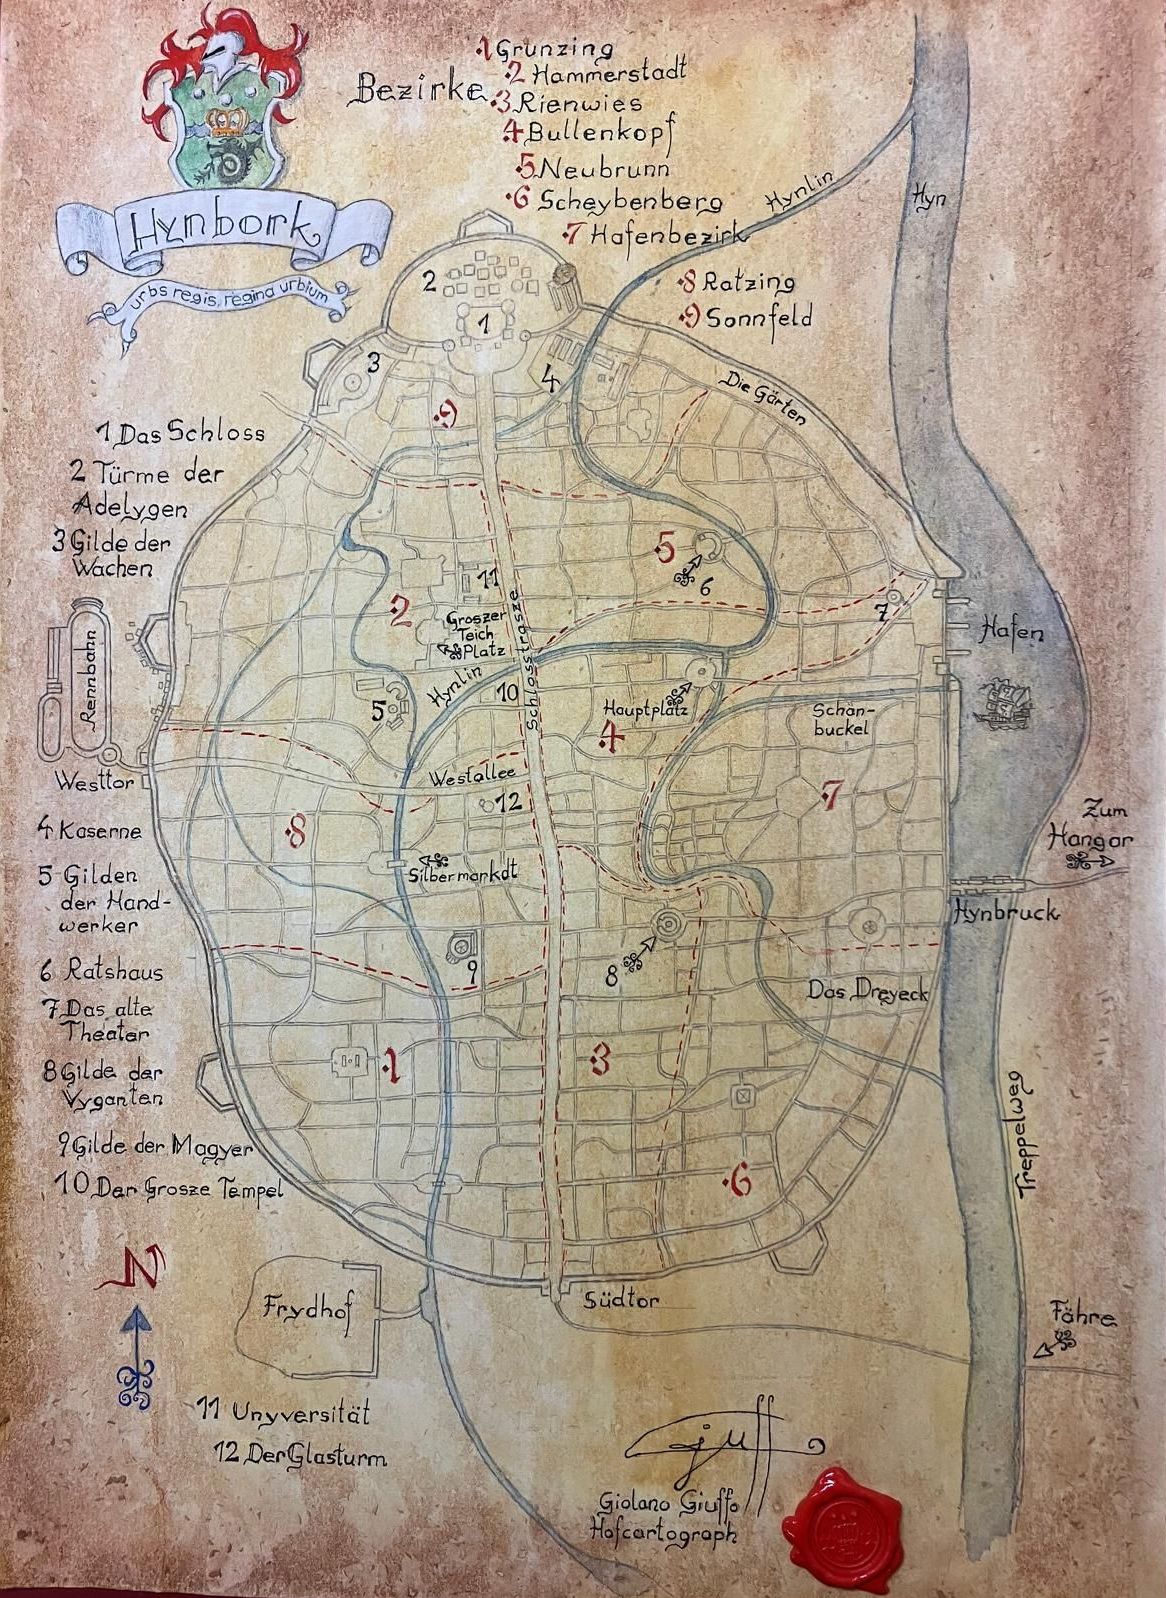 Hynbork
urbs regis, regina urbium
Bezirke
1 Grunzing
2 Hammerstadt
3 Rienwies
4 Bullenkopf
5 Neubrunn
6 Scheybenberg
7 Hafenbezirk
8 Ratzing
9 Sonnfeld
Hynlin
Hyn
2
1
3
4
9
Die Gärten
1 Das Schloss
2 Türme der
Adelygen
3 Gilde der
Wachen
Rennbahn
Westtor
4 Kaserne
5 Gilden
der Hand-
werker
6 Ratshaus
7 Das alte
Theater
8 Gilde der
Vyganten
9 Gilde der Magyer
10 Der Grosze Tempel
5
6
11
2
7
Groszer
Teich
Platz
Schlossstrasze
Hafen
Hynlin
10
5
Hauptplatz
4
Schan-
buckel
Westallee
12
7
8
Silbermarkdt
Zum
Hangar
Hynbruck
9
8
Das Dreyeck
1
3
6
Treppelweg
N
Frydhof
Südtor
Fähre
11 Unyversität
12 Der Glasturm
Giolano Giuffo
Hofcartograph